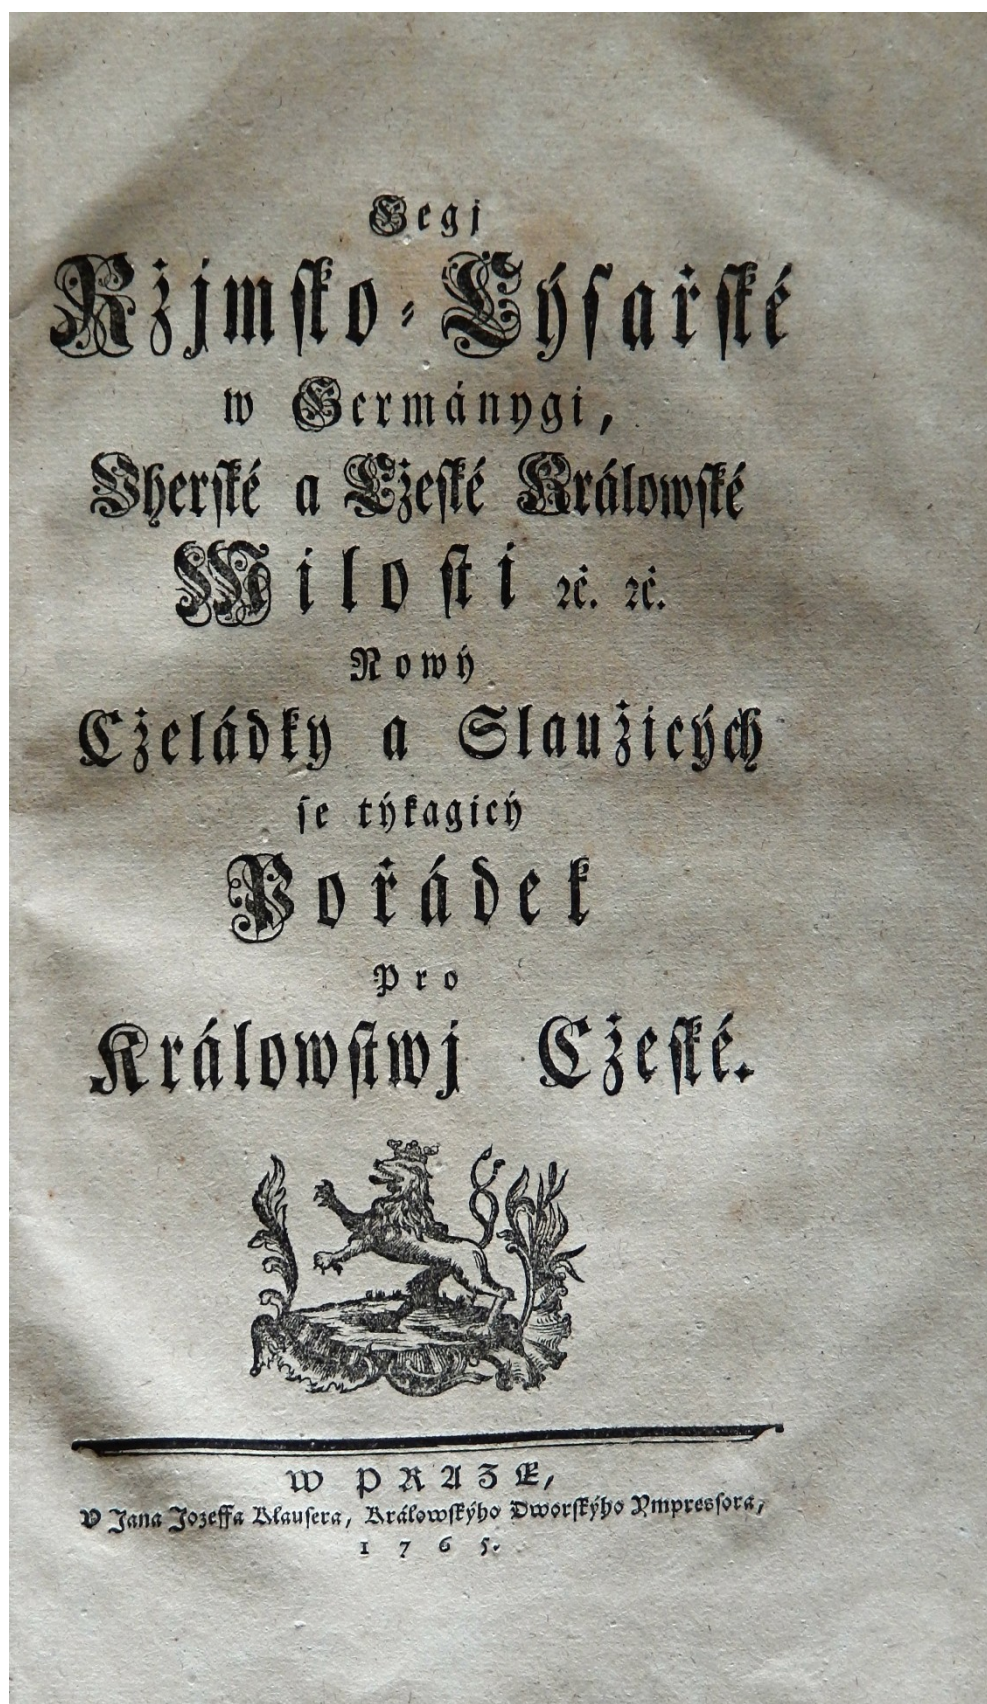 Gegj
Ržjmſko-Cýſařſké
w Germánygi,
Vherſké a Cžeſké Králowſké
Miloſti ꝛč. ꝛč.
Nowý
Cželádky a Slaužicých
ſe týkagicý
Pořádek
pro
Králowſtwj Cžeſké.
w PRAZE,
V Jana Jozeffa Klauſera, Králowſkýho Dworſkýho Ympreſſora,
1765.